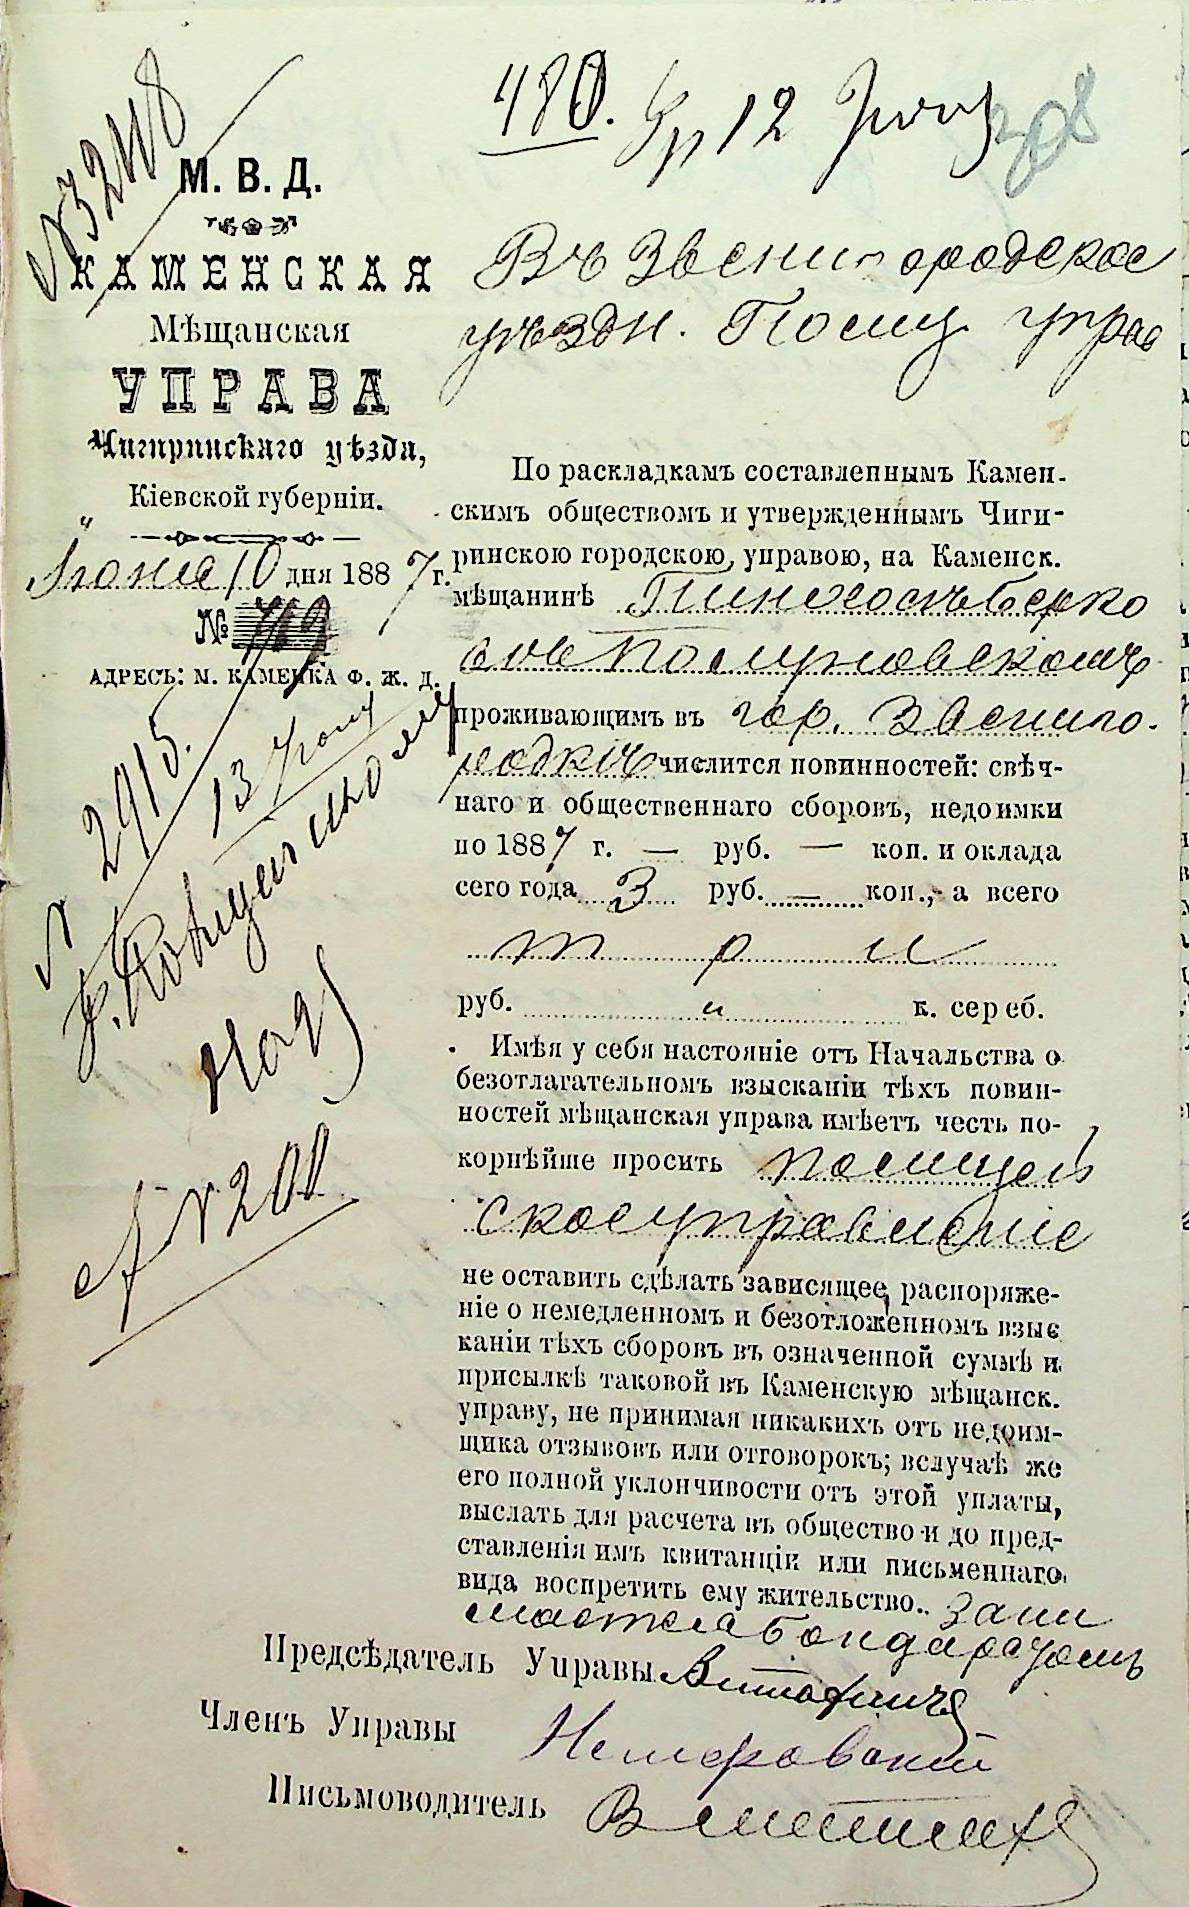 480. Пр 12 Іюня
208
№3248
М. В. Д.
КАМЕНСКАЯ
Мѣщанская
УПРАВА
Чигиринскаго уѣзда,
Кіевской губерніи.
Іюня 10 дня 1887 г.
№ 769
АДРЕСЪ: М. КАМЕНКА Ф. Ж. Д.
№ 2915.
13 Іюня
№ 200
Въ Звенигородское
уѣздн. Полиц. управ
По раскладкамъ составленнымъ Камен-
скимъ обществомъ и утвержденнымъ Чиги-
ринскою городскою, управою, на Каменск.
мѣщанинѣ Пинхосъ Берко
проживающимъ въ гор. Звениго-
родкѣ числится повинностей: свѣч-
наго и общественнаго сборовъ, недоимки
по 1887 г. — руб. — коп. и оклада
сего года 3 руб. — коп., а всего
три
руб. и к. сереб.
Имѣя у себя настояніе отъ Начальства о
безотлагательномъ взысканіи тѣхъ повин-
ностей мѣщанская управа имѣетъ честь по-
корнѣйше просить полицей
ское управленіе
не оставить сдѣлать зависящее, распоряже-
ніе о немедленномъ и безотложенномъ взыс
каніи тѣхъ сборовъ въ означенной суммѣ и
присылкѣ таковой въ Каменскую мѣщанск.
управу, не принимая никакихъ отъ недоим-
щика отзывовъ или отговорокъ; вслучаѣ же
его полной уклончивости отъ этой уплаты,
выслать для расчета въ общество и до пред-
ставленія имъ квитанціи или письменнаго
вида воспретить ему жительство.. Зани
мается Бондарствомъ
Предсѣдатель Управы
Членъ Управы
Письмоводитель